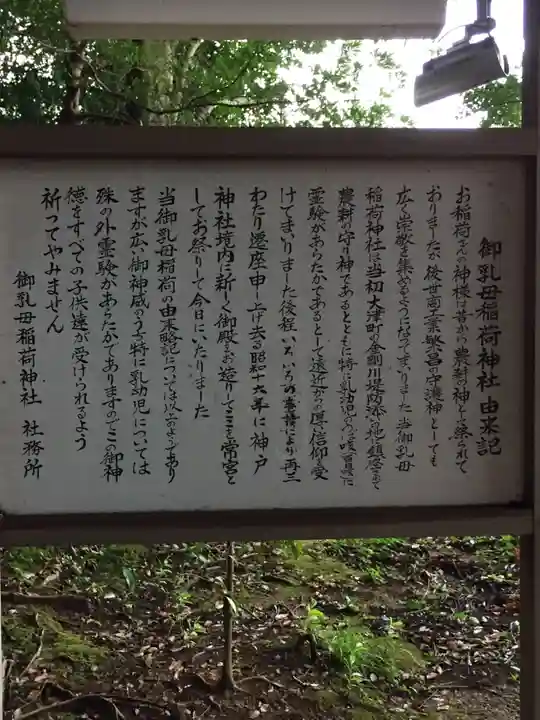 御乳母稲荷神社 由来記
お稲荷さんの神様は昔から農耕の神として祭られて
おりましたが後世商工業繁昌の守護神としても
広く崇敬を集めるようになってまいりました 当御乳母
稲荷神社は当初大津町の金剛川堤防添いの地に鎮座されて
農耕の守り神であるとともに特に乳幼児の
霊験があらたかであるとして遠近からの厚い信仰を受
けてまいりました後程いろいろの事情により再三
わたり遷座申し上げ去る昭和十六年に神戸
神社境内に新しく御殿をお造りしてここを常宮と
してお祭りして今日にいたりました
当御乳母稲荷の由来略記については以上のようであり
ますが広い御神威のうち特に乳幼児については
殊の外霊験があらたかでありますのでこの御神
徳をすべての子供達が受けられるよう
祈ってやみません
御乳母稲荷神社 社務所